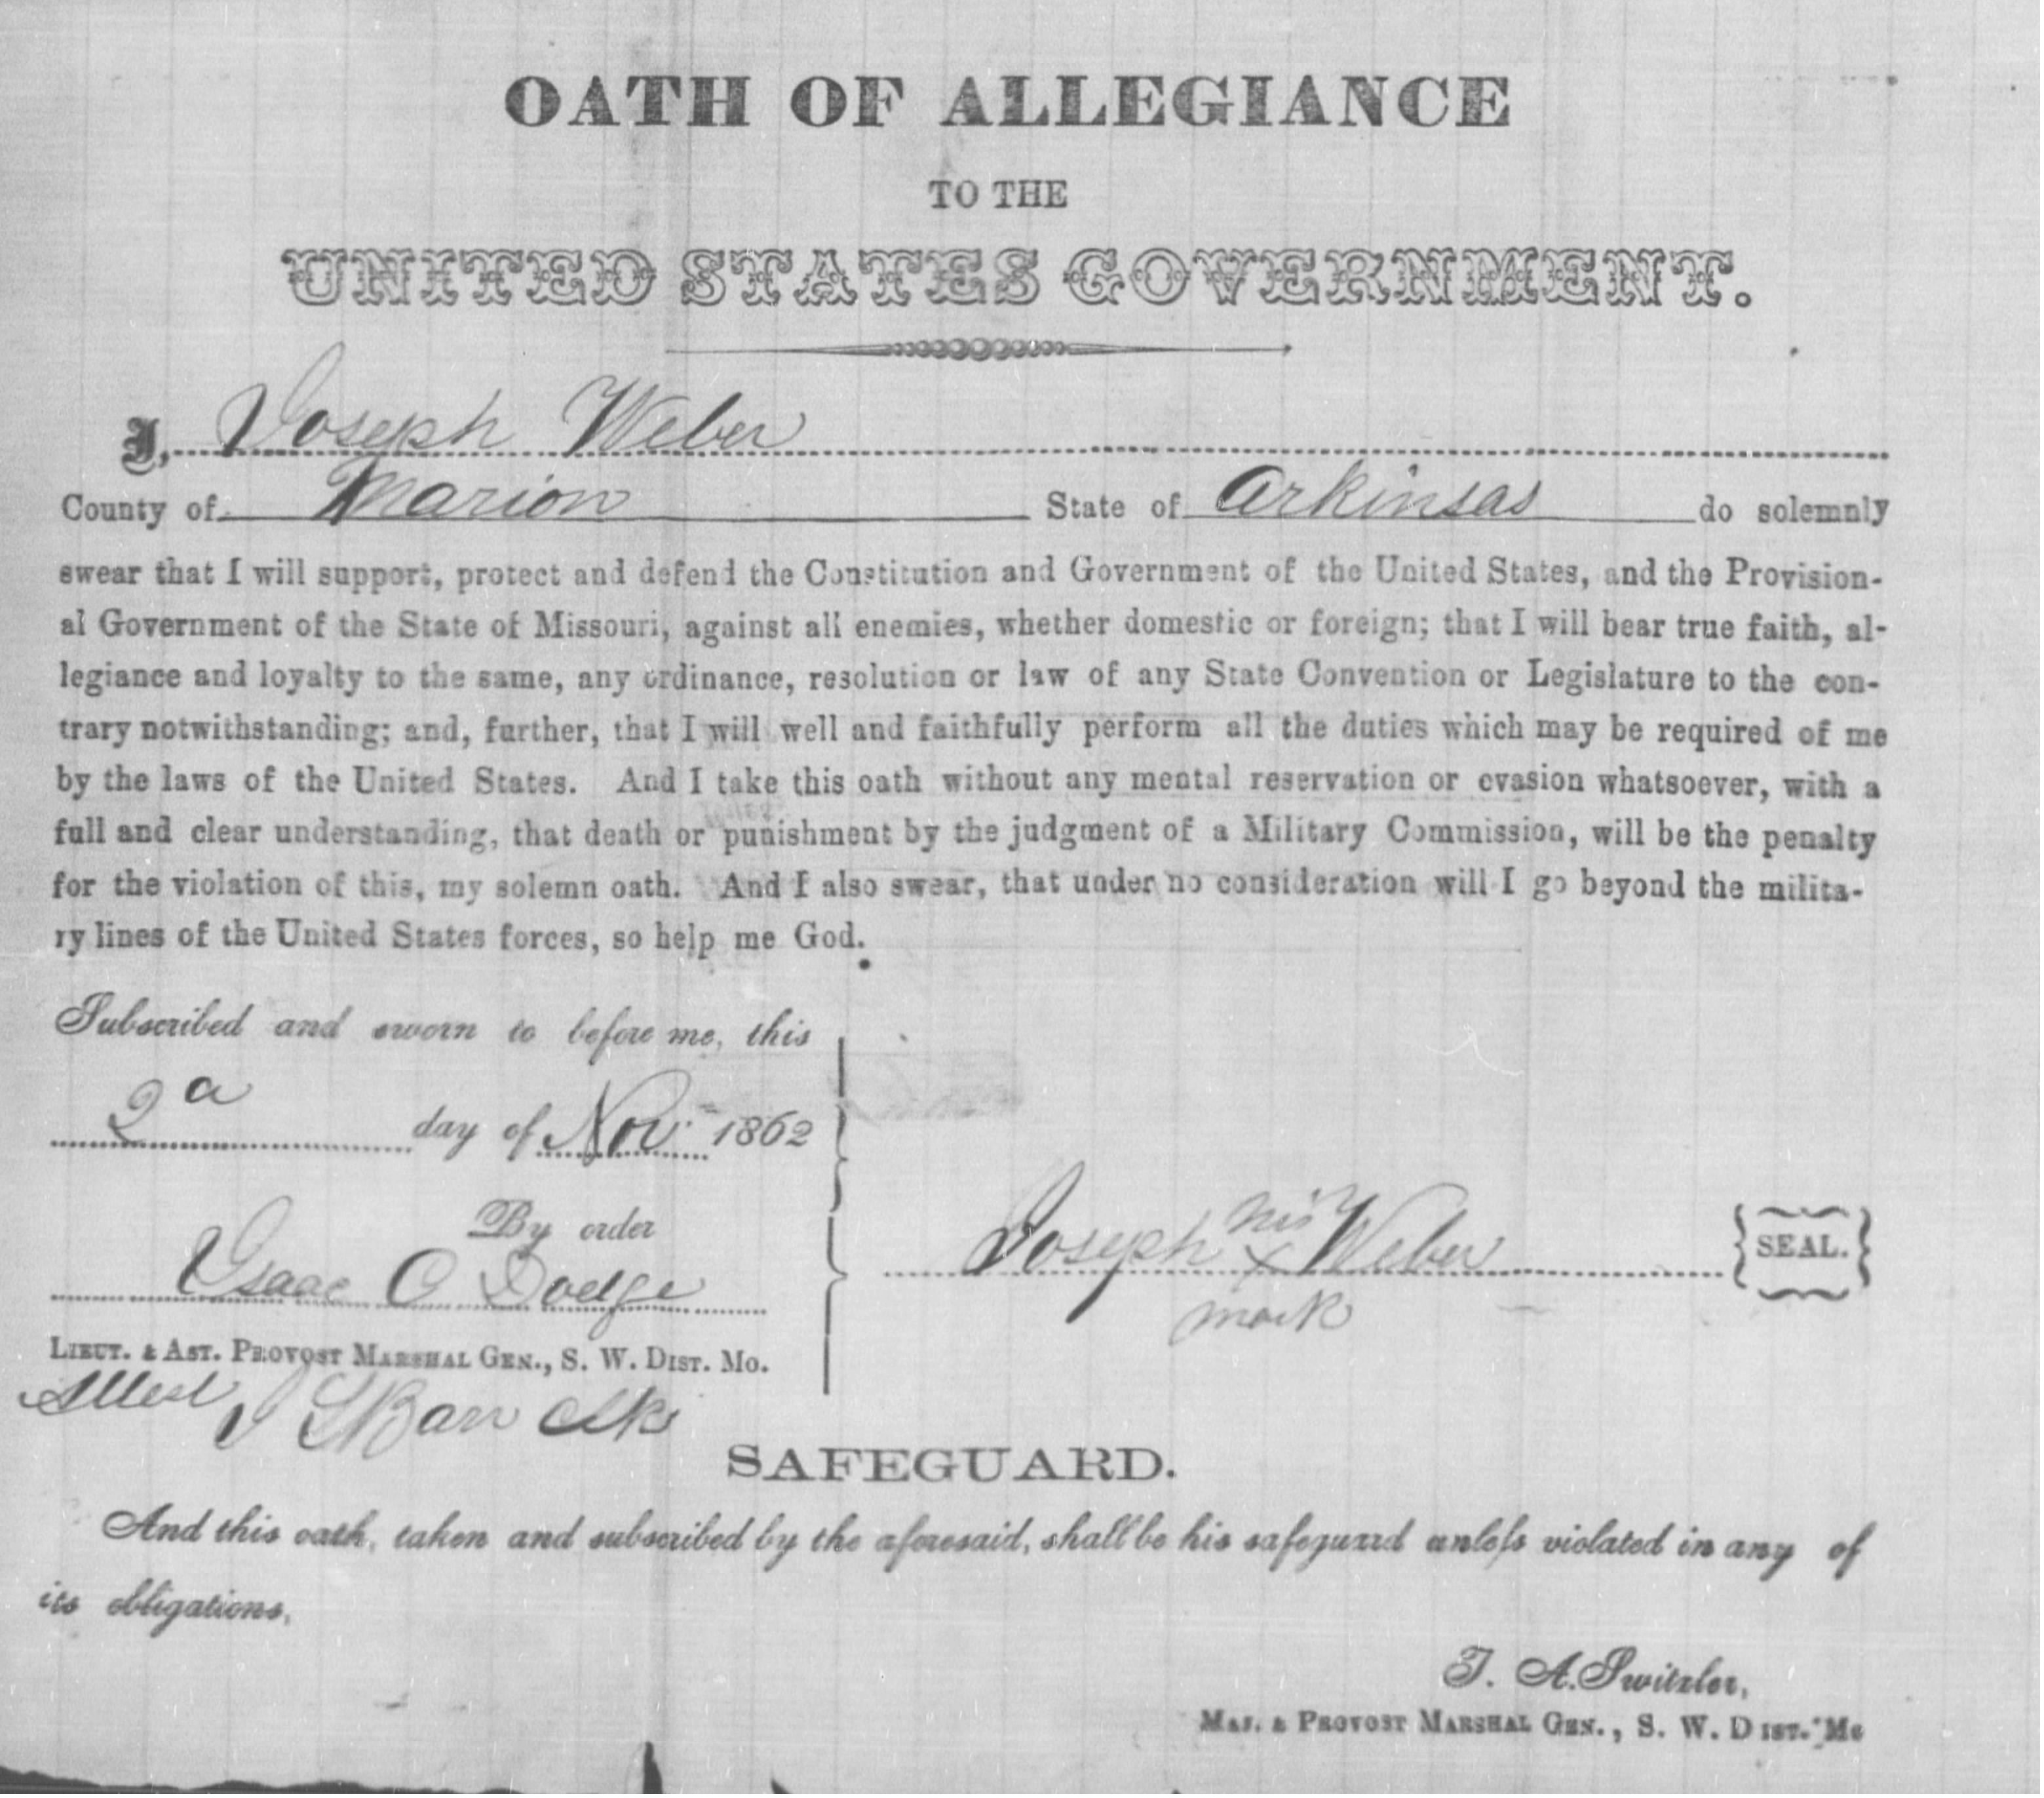 OATH OF ALLEGIANCE
TO THE
UNITED STATES GOVERNMENT.
I, Joseph Weber
County of Marion State of Arkinsas do solemnly
swear that I will support, protect and defend the Constitution and Government of the United States, and the Provision-
al Government of the State of Missouri, against all enemies, whether domestic or foreign; that I will bear true faith, al-
legiance and loyalty to the same, any ordinance, resolution or law of any State Convention or Legislature to the con-
trary notwithstanding; and, further, that I will well and faithfully perform all the duties which may be required of me
by the laws of the United States. And I take this oath without any mental reservation or evasion whatsoever, with a
full and clear understanding, that death or punishment by the judgment of a Military Commission, will be the penalty
for the violation of this, my solemn oath. And I also swear, that under no consideration will I go beyond the milita-
ry lines of the United States forces, so help me God.
Subscribed and sworn to before me, this
2d day of Nov. 1862
By order
Isaac C Dodge
LIEUT. & AST. PROVOST MARSHAL GEN., S. W. DIST. MO.
Attest
Joseph his x Weber
mark
SEAL.
SAFEGUARD.
And this oath, taken and subscribed by the aforesaid, shall be his safeguard unless violated in any of
its obligations.
T. A. Switzler,
MAJ. & PROVOST MARSHAL GEN., S. W. DIST. Mo